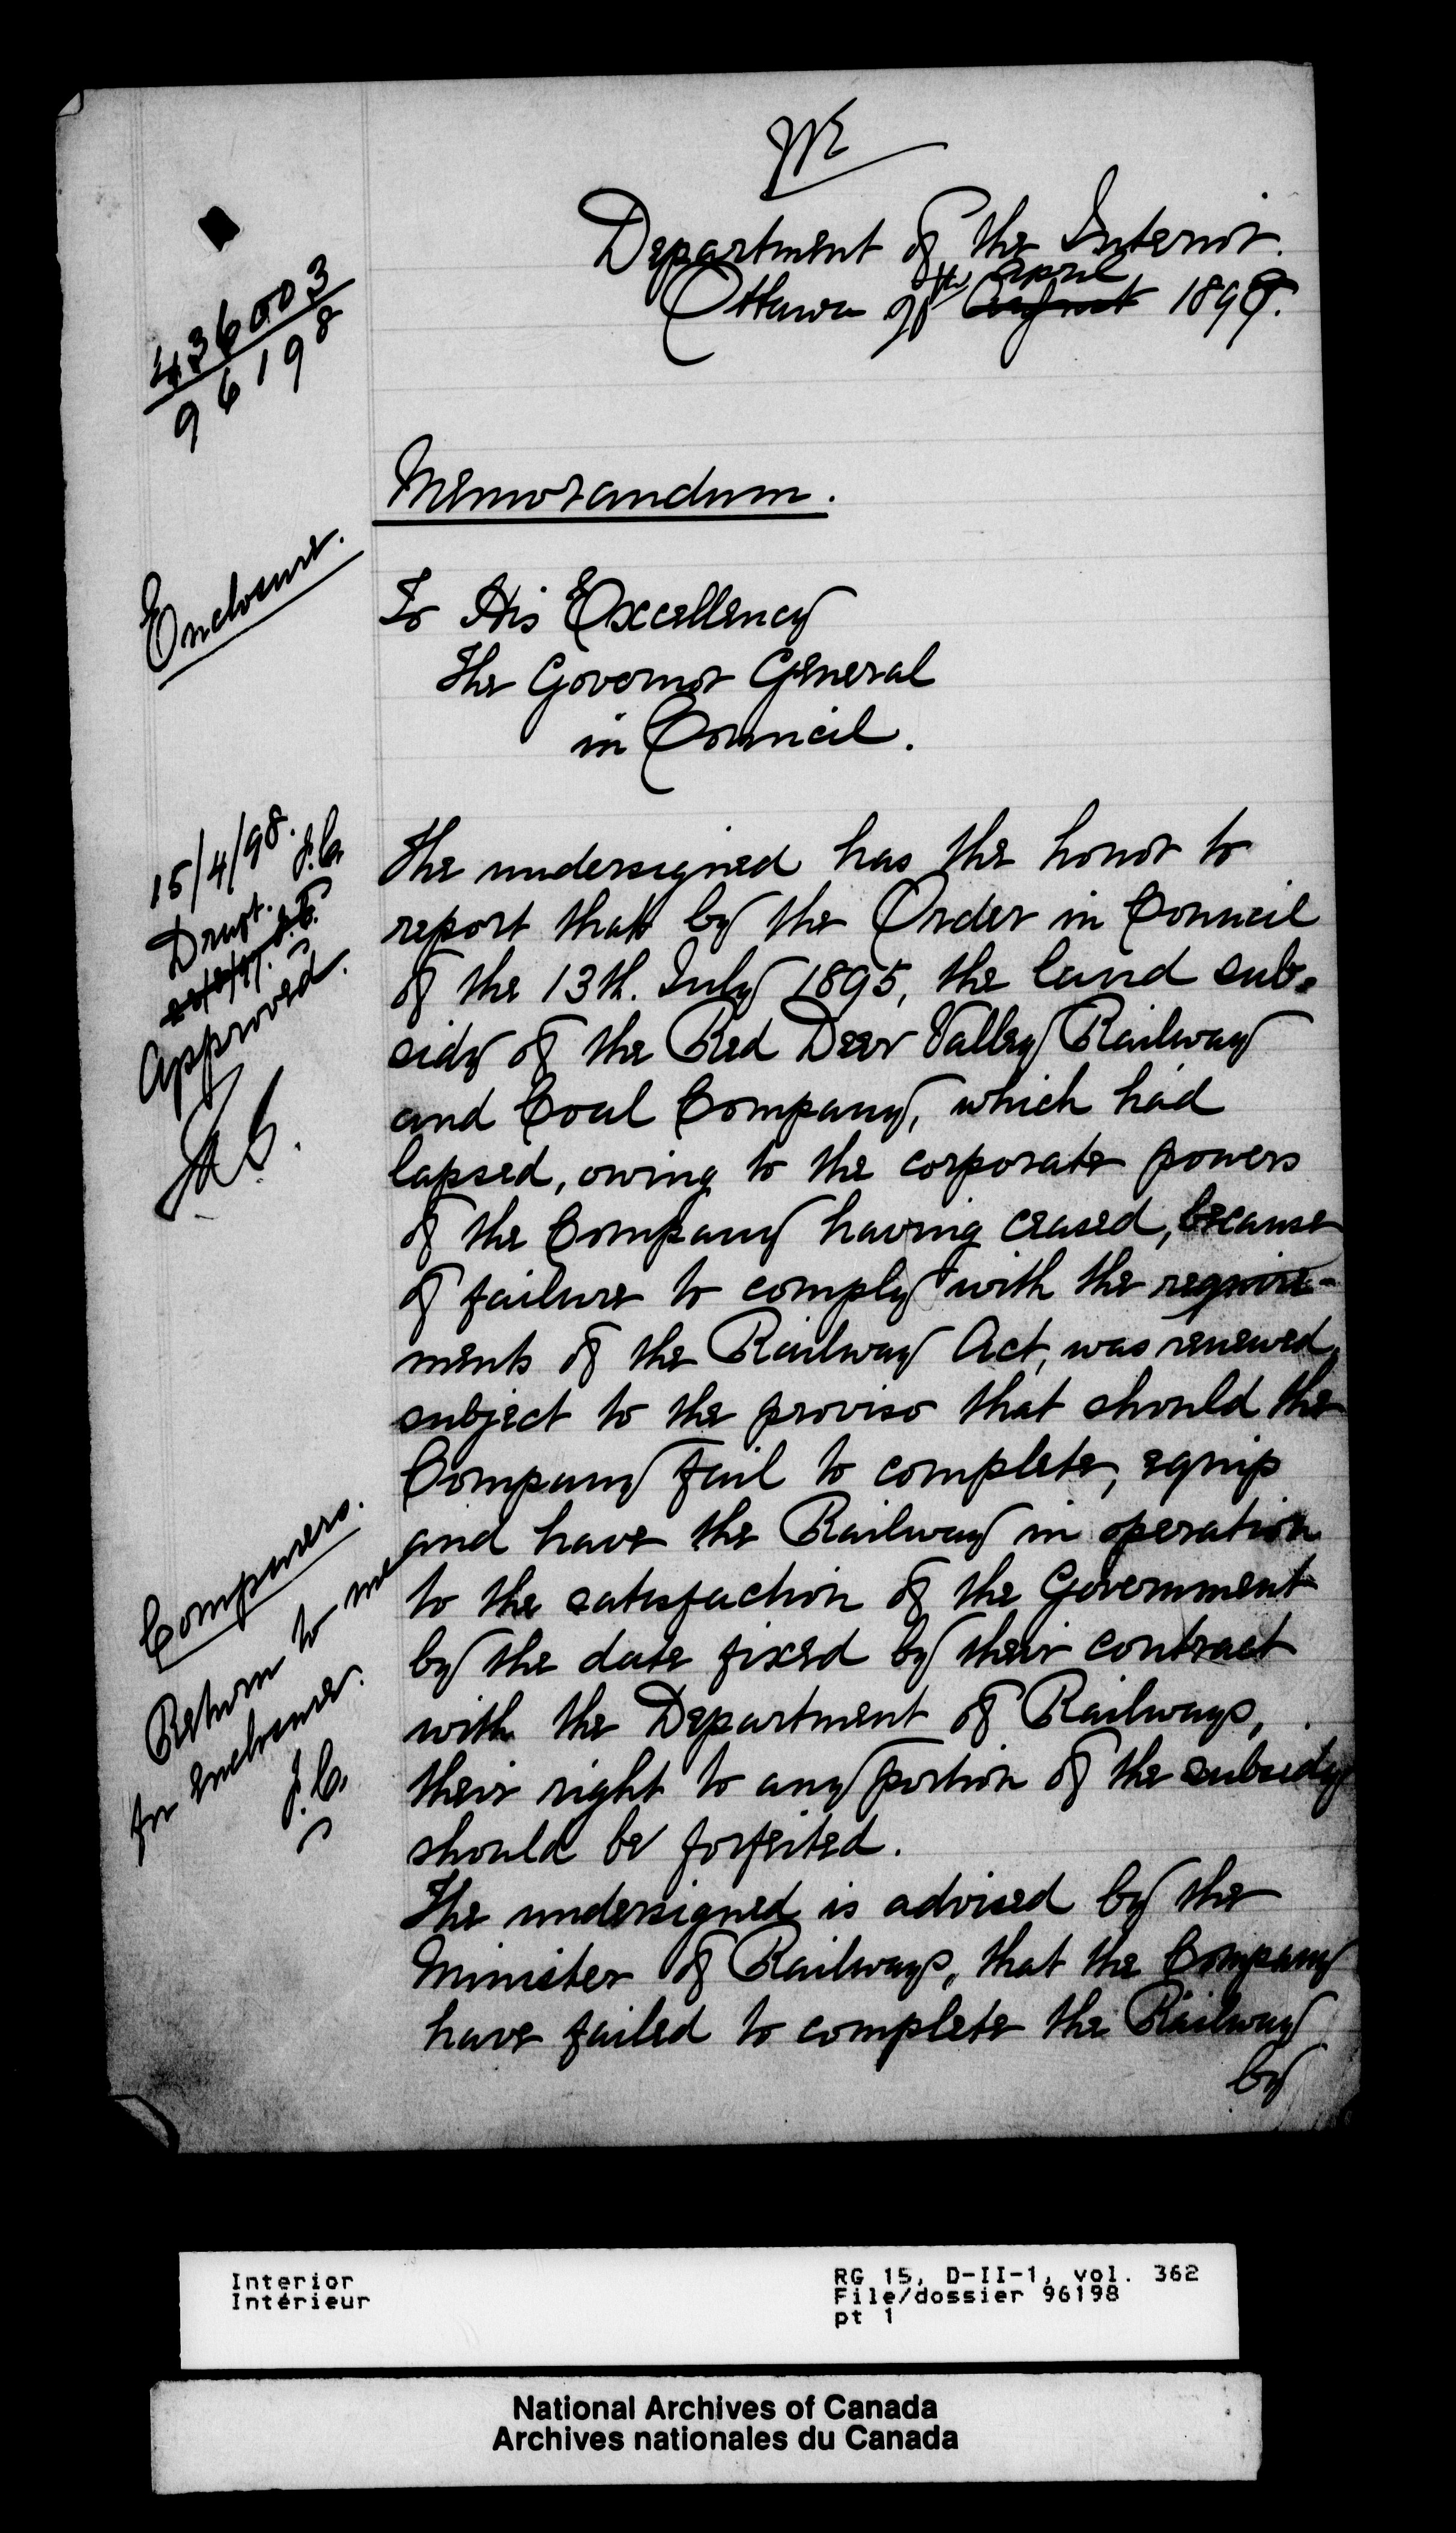 Department of the Interior.
Ottawa th April August 1898.
436003
96198
Memorandum.
Enclosure.
To His Excellency
The Governor General
in Council.
15/4/98. J.C.
Draft.
Approved.
The undersigned has the honor to
report that by the Order in Council
of the 13th. July 1895, the land sub-
sidy of the Red Deer Valley Railway
and Coal Company, which had
lapsed, owing to the corporate powers
of the Company having ceased, because
of failure to comply with the require-
ments of the Railway Act, was renewed,
subject to the proviso that should the
Company fail to complete, equip
and have the Railway in operation
to the satisfaction of the Government
by the date fixed by their contract
with the Department of Railways,
their right to any portion of the subsidy
should be forfeited.
Comparers.
Return to me
for enclosure.
J.C.
The undersigned is advised by the
Minister of Railways, that the Company
have failed to complete the Railway
by
Interior
Intérieur
RG 15, D-II-1, vol. 362
File/dossier 96198
pt 1
National Archives of Canada
Archives nationales du Canada